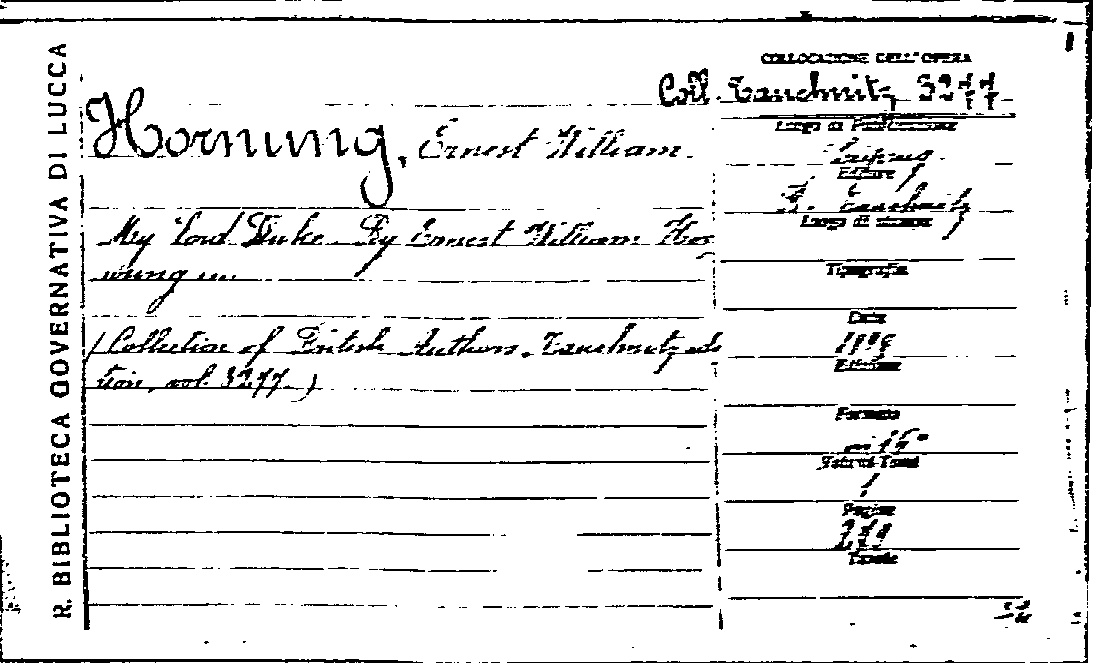 R. BIBLIOTECA GOVERNATIVA DI LUCCA
COLLOCAZIONE DELL'OPERA
Coll. Tauchnitz 3277
Hornung, Ernest William.
Luogo di Pubblicazione
Leipzig
Editore
B. Tauchnitz
Luogo di stampa
My Lord Duke. By Ernest William Hor
nung ...
Tipografia
(Collection of British Authors. Tauchnitz edi
tion, vol. 3277.)
Data
Edizione
Formato
in 16°
Pagine
Tavole